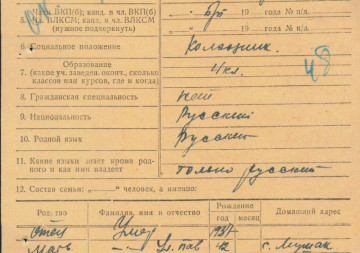 Член ВКП(б); канд. в чл. ВКП(б) б/п 19 года № п/д.
5. Чл. ВЛКСМ; канд. в чл. ВЛКСМ
(нужное подчеркнуть) 19 года № п/д.
6. Социальное положение Колхозник.
Образование
7. (какое уч. заведен. оконч., сколько классов или курсов, где и когда) 4 кл.
48
8. Гражданская специальность нет
9. Национальность Русский
10. Родной язык Русский
11. Какие языки знает кроме родного и как ими владеет только русский
12. Состав семьи: „ “ человек, а именно:
Родство Фамилия, имя и отчество Рождение Домашний адрес
год месяц
Отец Умер 1937
Мать -"- Ул. Пав 12 с.